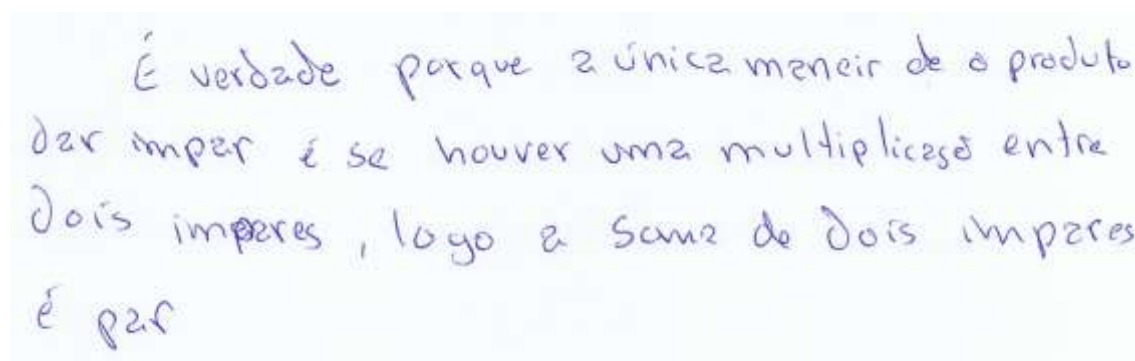 É verdade porque a única maneir de o produto
dar impar é se houver uma multiplicação entre
dois impares, logo a soma de dois impares
é par